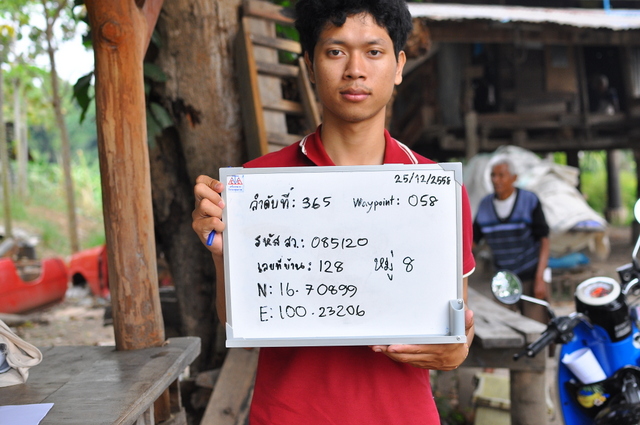 25/12/2558
ลำดับที่: 365 Waypoint: 058
รหัส สว.: 085120
เลขที่บ้าน: 128 หมู่ 8
N: 16.70899
E: 100.23206